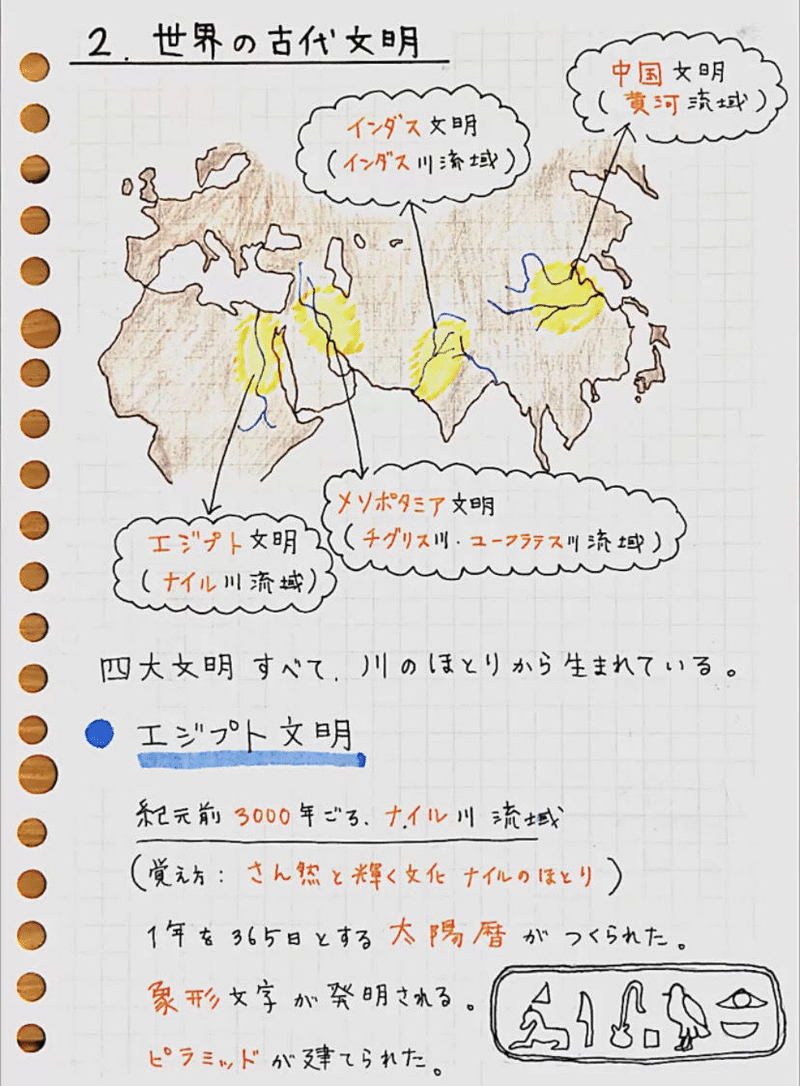 2. 世界の古代文明
中国文明
(黄河流域)
インダス文明
(インダス川流域)
メソポタミア文明
(チグリス川・ユーフラテス川流域)
エジプト文明
(ナイル川流域)
四大文明すべて、川のほとりから生まれている。
エジプト文明
紀元前3000年ごろ、ナイル川流域
(覚え方: さん然と輝く文化 ナイルのほとり)
1年を365日とする太陽暦がつくられた。
象形文字が発明される。
ピラミッドが建てられた。